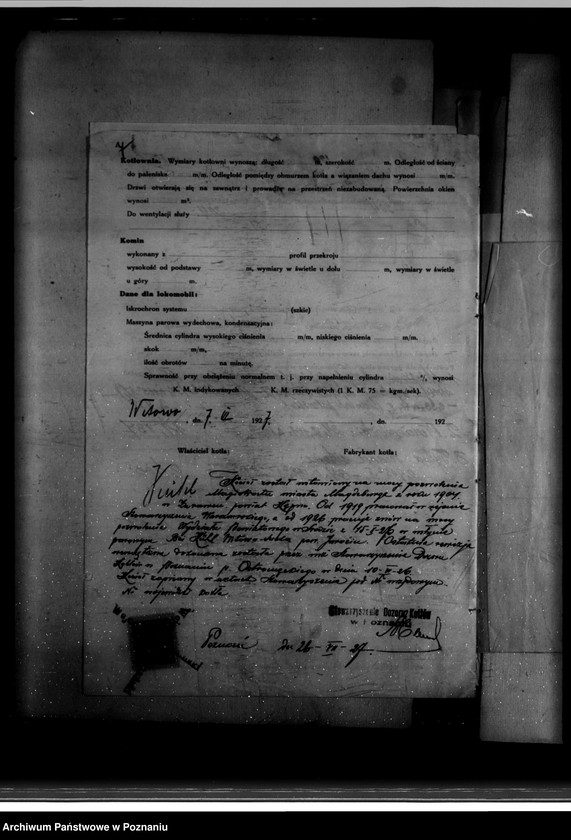 Kotłownia. Wymiary kotłowni wynoszą: długość m, szerokość m. Odległość od ściany
do paleniska m/m. Odległość pomiędzy obmurzem kotła a wiązaniem dachu wynosi m/m.
Drzwi otwierają się na zewnątrz i prowadzą na przestrzeń niezabudowaną. Powierzchnia okien
wynosi m².
Do wentylacji służy
Komin
wykonany z profil przekroju
wysokość od podstawy m, wymiary w świetle u dołu m, wymiary w świetle
u góry m.
Dane dla lokomobil:
Iskrochron systemu (szkic)
Maszyna parowa wydechowa, kondenzacyjna:
Średnica cylindra wysokiego ciśnienia m/m, niskiego ciśnienia m/m.
skok m/m,
ilość obrotów na minutę,
Sprawność przy obciążeniu normalnem t. j. przy napełnieniu cylindra %, wynosi
K. M. indykowanych K. M. rzeczywistych (1 K. M. 75 = kgm./sek).
Witowo, dn. 7. 1927. , dn. 192
Właściciel kotła: Fabrykant kotła:
Kocioł został na mocy pozwolenia
Magistratu miasta Magdeburga z roku 1904
powiat Kępno. Od 1919 pracował w rejonie
Stowarzyszenia Warszawskiego, a od 1926 pracuje na mocy
pozwolenia Wydziału Powiatowego w Środzie z 15-I-26 w młynie
parowym pow. Ostatnia rewizja
dokonana została przez inż. Stowarzyszenia Dozoru
Kotłów w Poznaniu p. Ostrowskiego w dniu 10-II-26.
Kocioł zapisany w aktach Stowarzyszenia pod №
№ kotła.
Stowarzyszenie Dozoru Kotłów
w Poznaniu
Poznań dn. 26-VII-27.
Archiwum Państwowe w Poznaniu